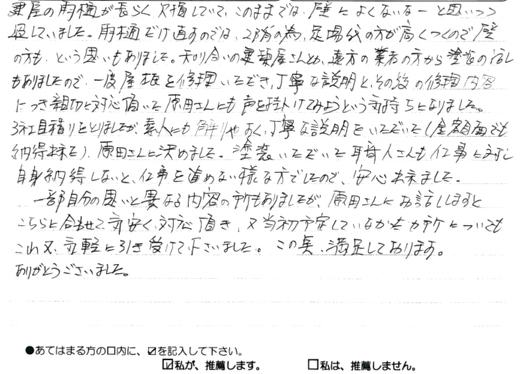 裏屋の雨樋が長らく欠損していて、このままでは、壁によくないなーと思いつつ
過していました。雨樋だけ直すのでは、2階の為、足場代の方が高くつくので壁
の方も、という思いもありました。知り合いの電気屋さんとか、遠方の業者の方から塗装の話し
もありましたので、一度屋根を修理いただき、丁寧な説明と、その後の修理内容
につき親切な対応頂いて原田さんにも声を掛けてみようという気持ちになりました。
3社見積りをとりましたが、素人にも解りやすく、丁寧な説明をいただいて(金額面でも
納得出来た)、原田さんに決めました。塗装いただいた職人さんも仕事に対し
自身納得しないと、仕事を進めない様な方でしたので、安心出来ました。
一部自分の思いと異なる内容の所もありましたが、原田さんにお話ししますと
こちらに合わせて気安く対応頂き、又当初予定していなかったカ所についても
これ又、気軽に引き受けて下さいました。この点、満足しております。
ありがとうございました。
●あてはまる方の口内に、☑を記入して下さい。
☑私が、推薦します。 □私は、推薦しません。